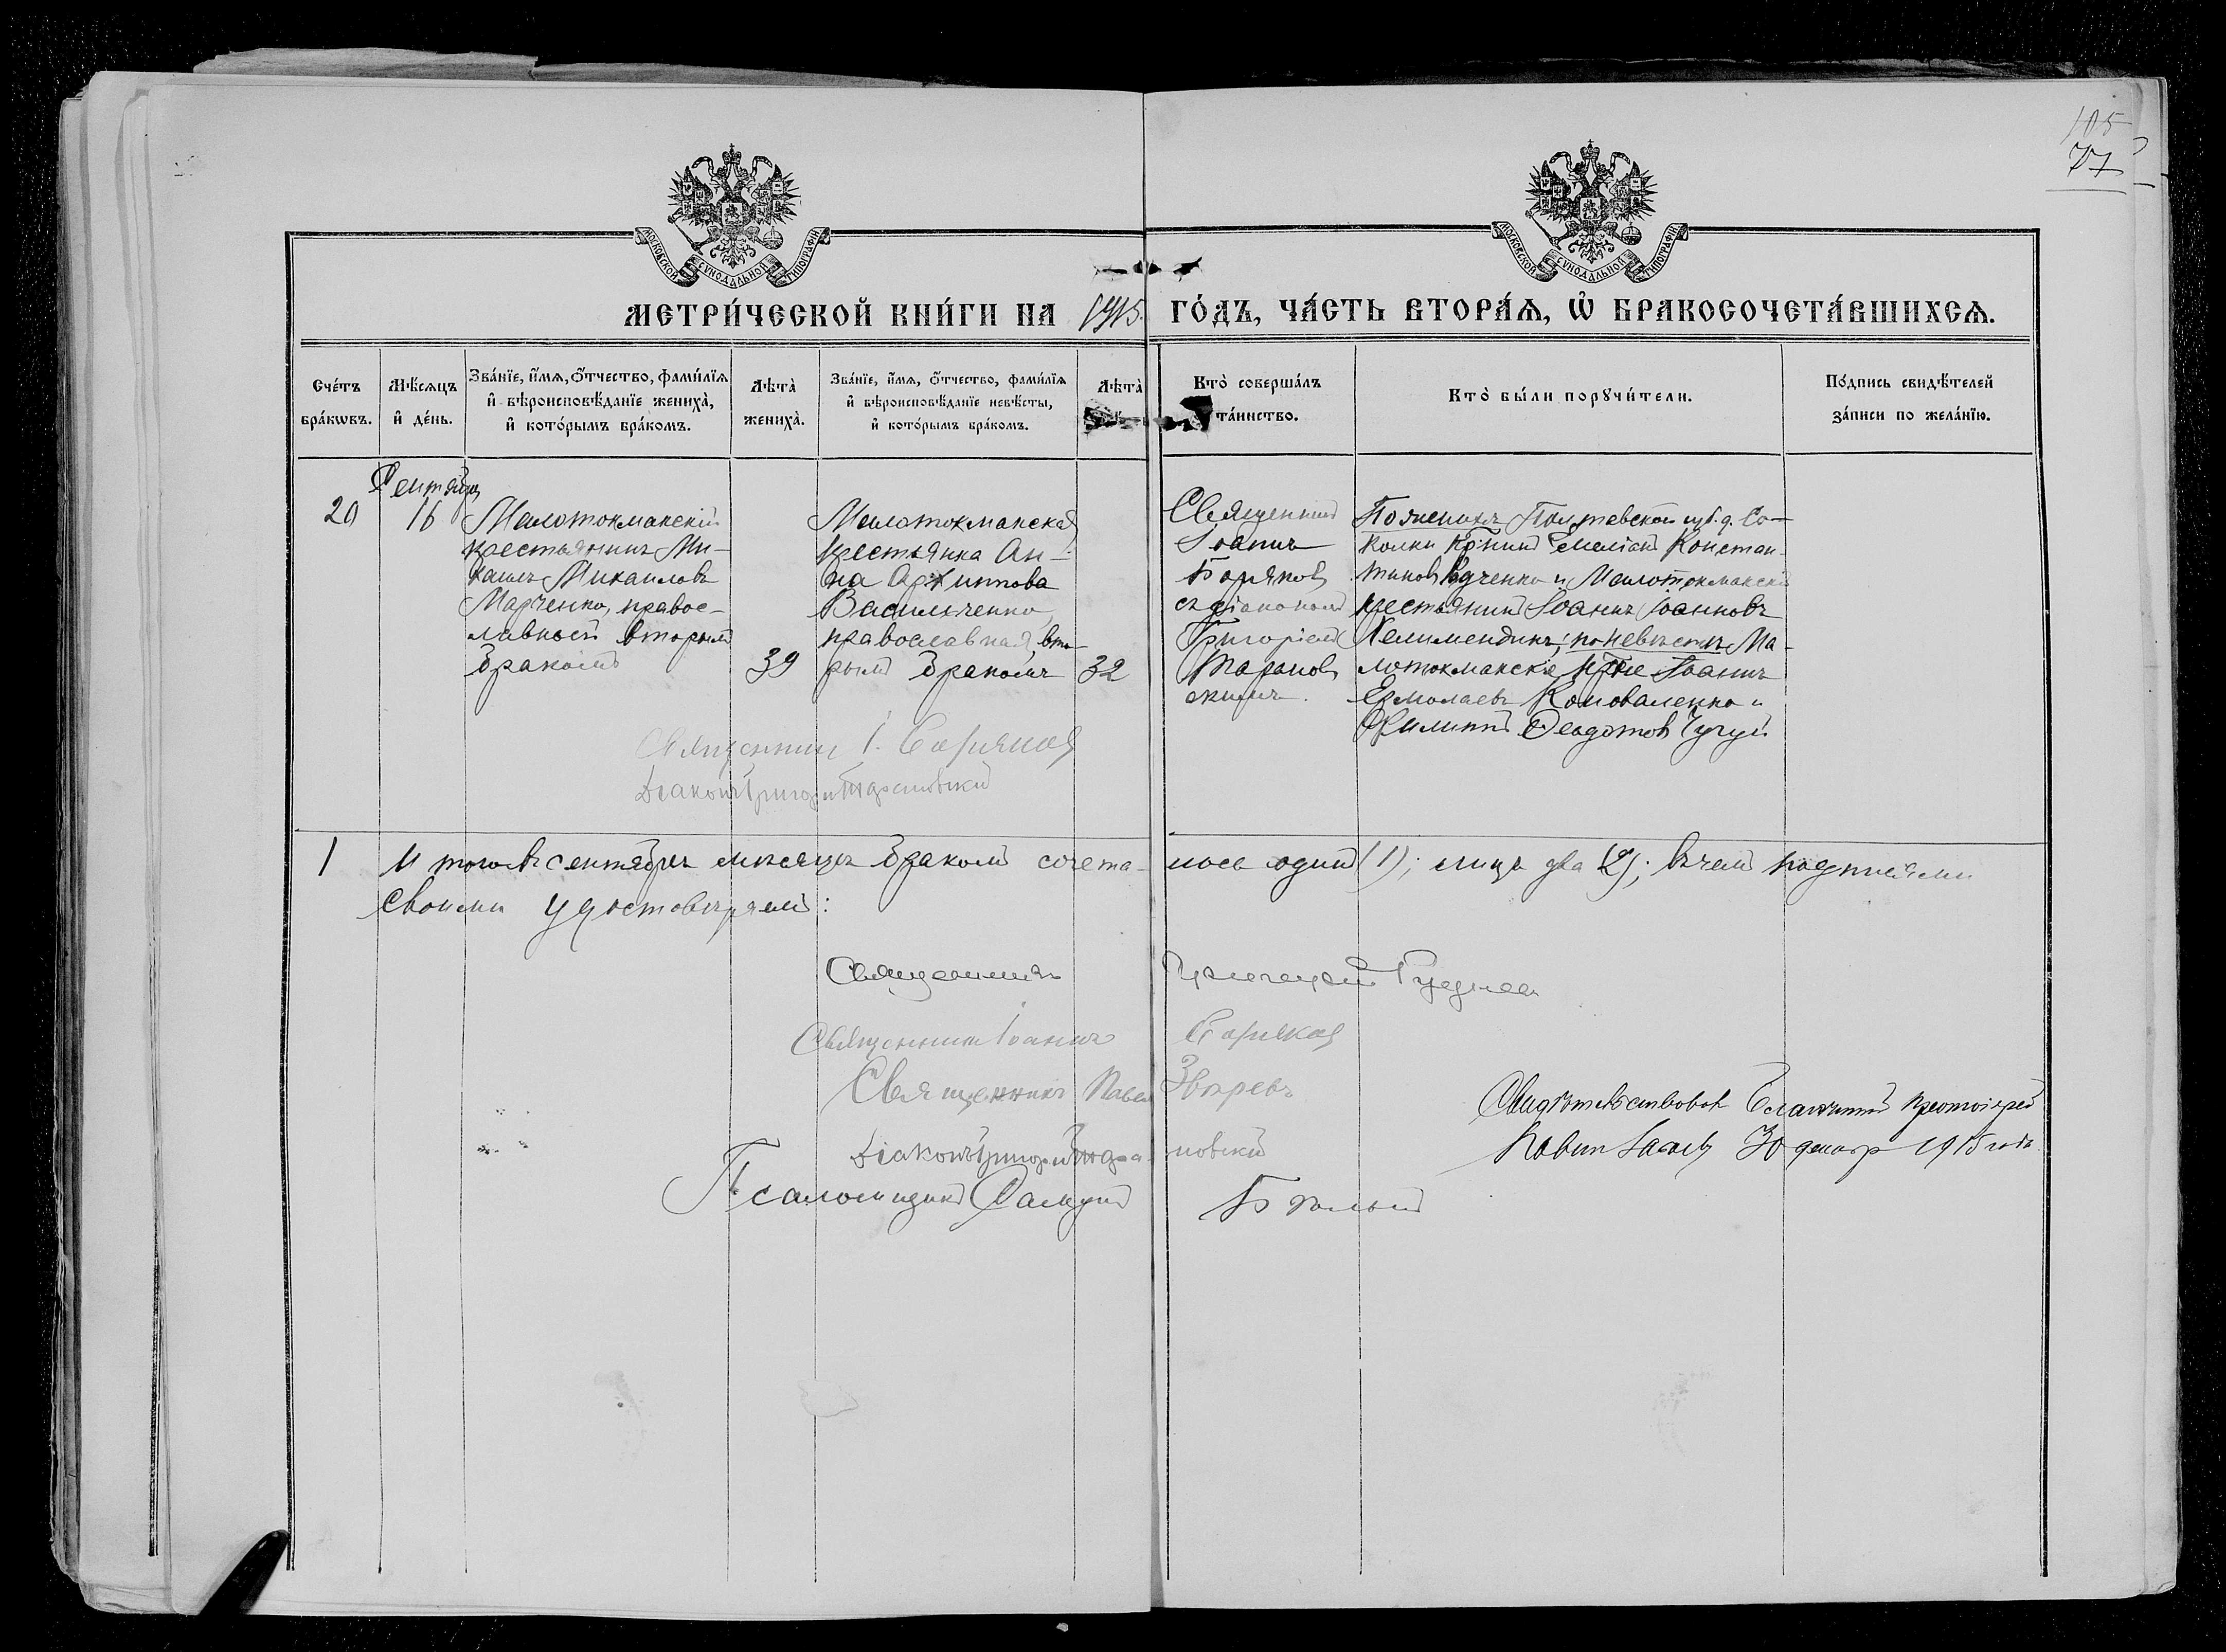 105
77
МОСКОВСКОЙ СУНОДАЛЬНОЙ ТИПОГРАФІИ
МОСКОВСКОЙ СУНОДАЛЬНОЙ ТИПОГРАФІИ
МЕТРИ́ЧЕСКОЙ КНИ́ГИ НА 1915 ГО́ДЪ, ЧА́СТЬ ВТОРА́Ѧ, Ѽ БРАКОСОЧЕТА́ВШИХСѦ.
Сче́тъ бра́кѡвъ.
Мѣ́сяцъ и҆ де́нь.
Зва́нїе, и҆́мѧ, ѻ҆́тчество, фами́лїѧ
и҆ вѣроисповѣ́данїе жениха̀,
и҆ кото́рымъ бра́комъ.
Лѣта̀ жениха̀.
Зва́нїе, и҆́мѧ, ѻ҆́тчество, фами́лїѧ
и҆ вѣроисповѣ́данїе невѣ́сты,
и҆ кото́рымъ бра́комъ.
Лѣта̀
Кто̀ соверша́лъ та́инство.
Кто̀ бы́ли порꙋчи́тели.
По́дпись свидѣ́телей
за́писи по жела́нїю.
Сентябрь
20
16
Малотокмакскій
крестьянинъ Ми-
хаилъ Михаиловъ
Марченко, правос-
лавный вторымъ
бракомъ
39
Малотокмакская
крестьянка Ан-
на Архиппова
Васильченко,
православная, вто-
рымъ бракомъ
32
Священникъ
Іоаннъ
Боряковъ
съ діакономъ
Григоріемъ
Таранов
скимъ.
По женихѣ Полтавской губ. д. Со-
колки кр-нинъ Емеліанъ Констан-
тиновъ и Малотокмакскій
крестьянинъ Іоаннъ Іоанновъ
по невѣстѣ Ма-
лотокмакскіе кр-не Іоаннъ
Ермолаевъ Коноваленко и
Филиппъ Ѳеодотовъ Чугуй
Священникъ І. Боряковъ
Діаконъ Григорій Тарановскій
1 Итого въ сентябрѣ мѣсяцѣ бракомъ сочета-лось одинъ (1); лицъ два (2); въ чемъ подписями
своими удостовѣряемъ:
Священникъ
Священникъ Іоаннъ Боряковъ
Священникъ Павелъ Звѣревъ
Діаконъ Григорій Тарановскій
Псаломщикъ Самуилъ Бѣлый
Свидѣтельствовалъ Благочинный Протоіерей
30 декабр 1915 года